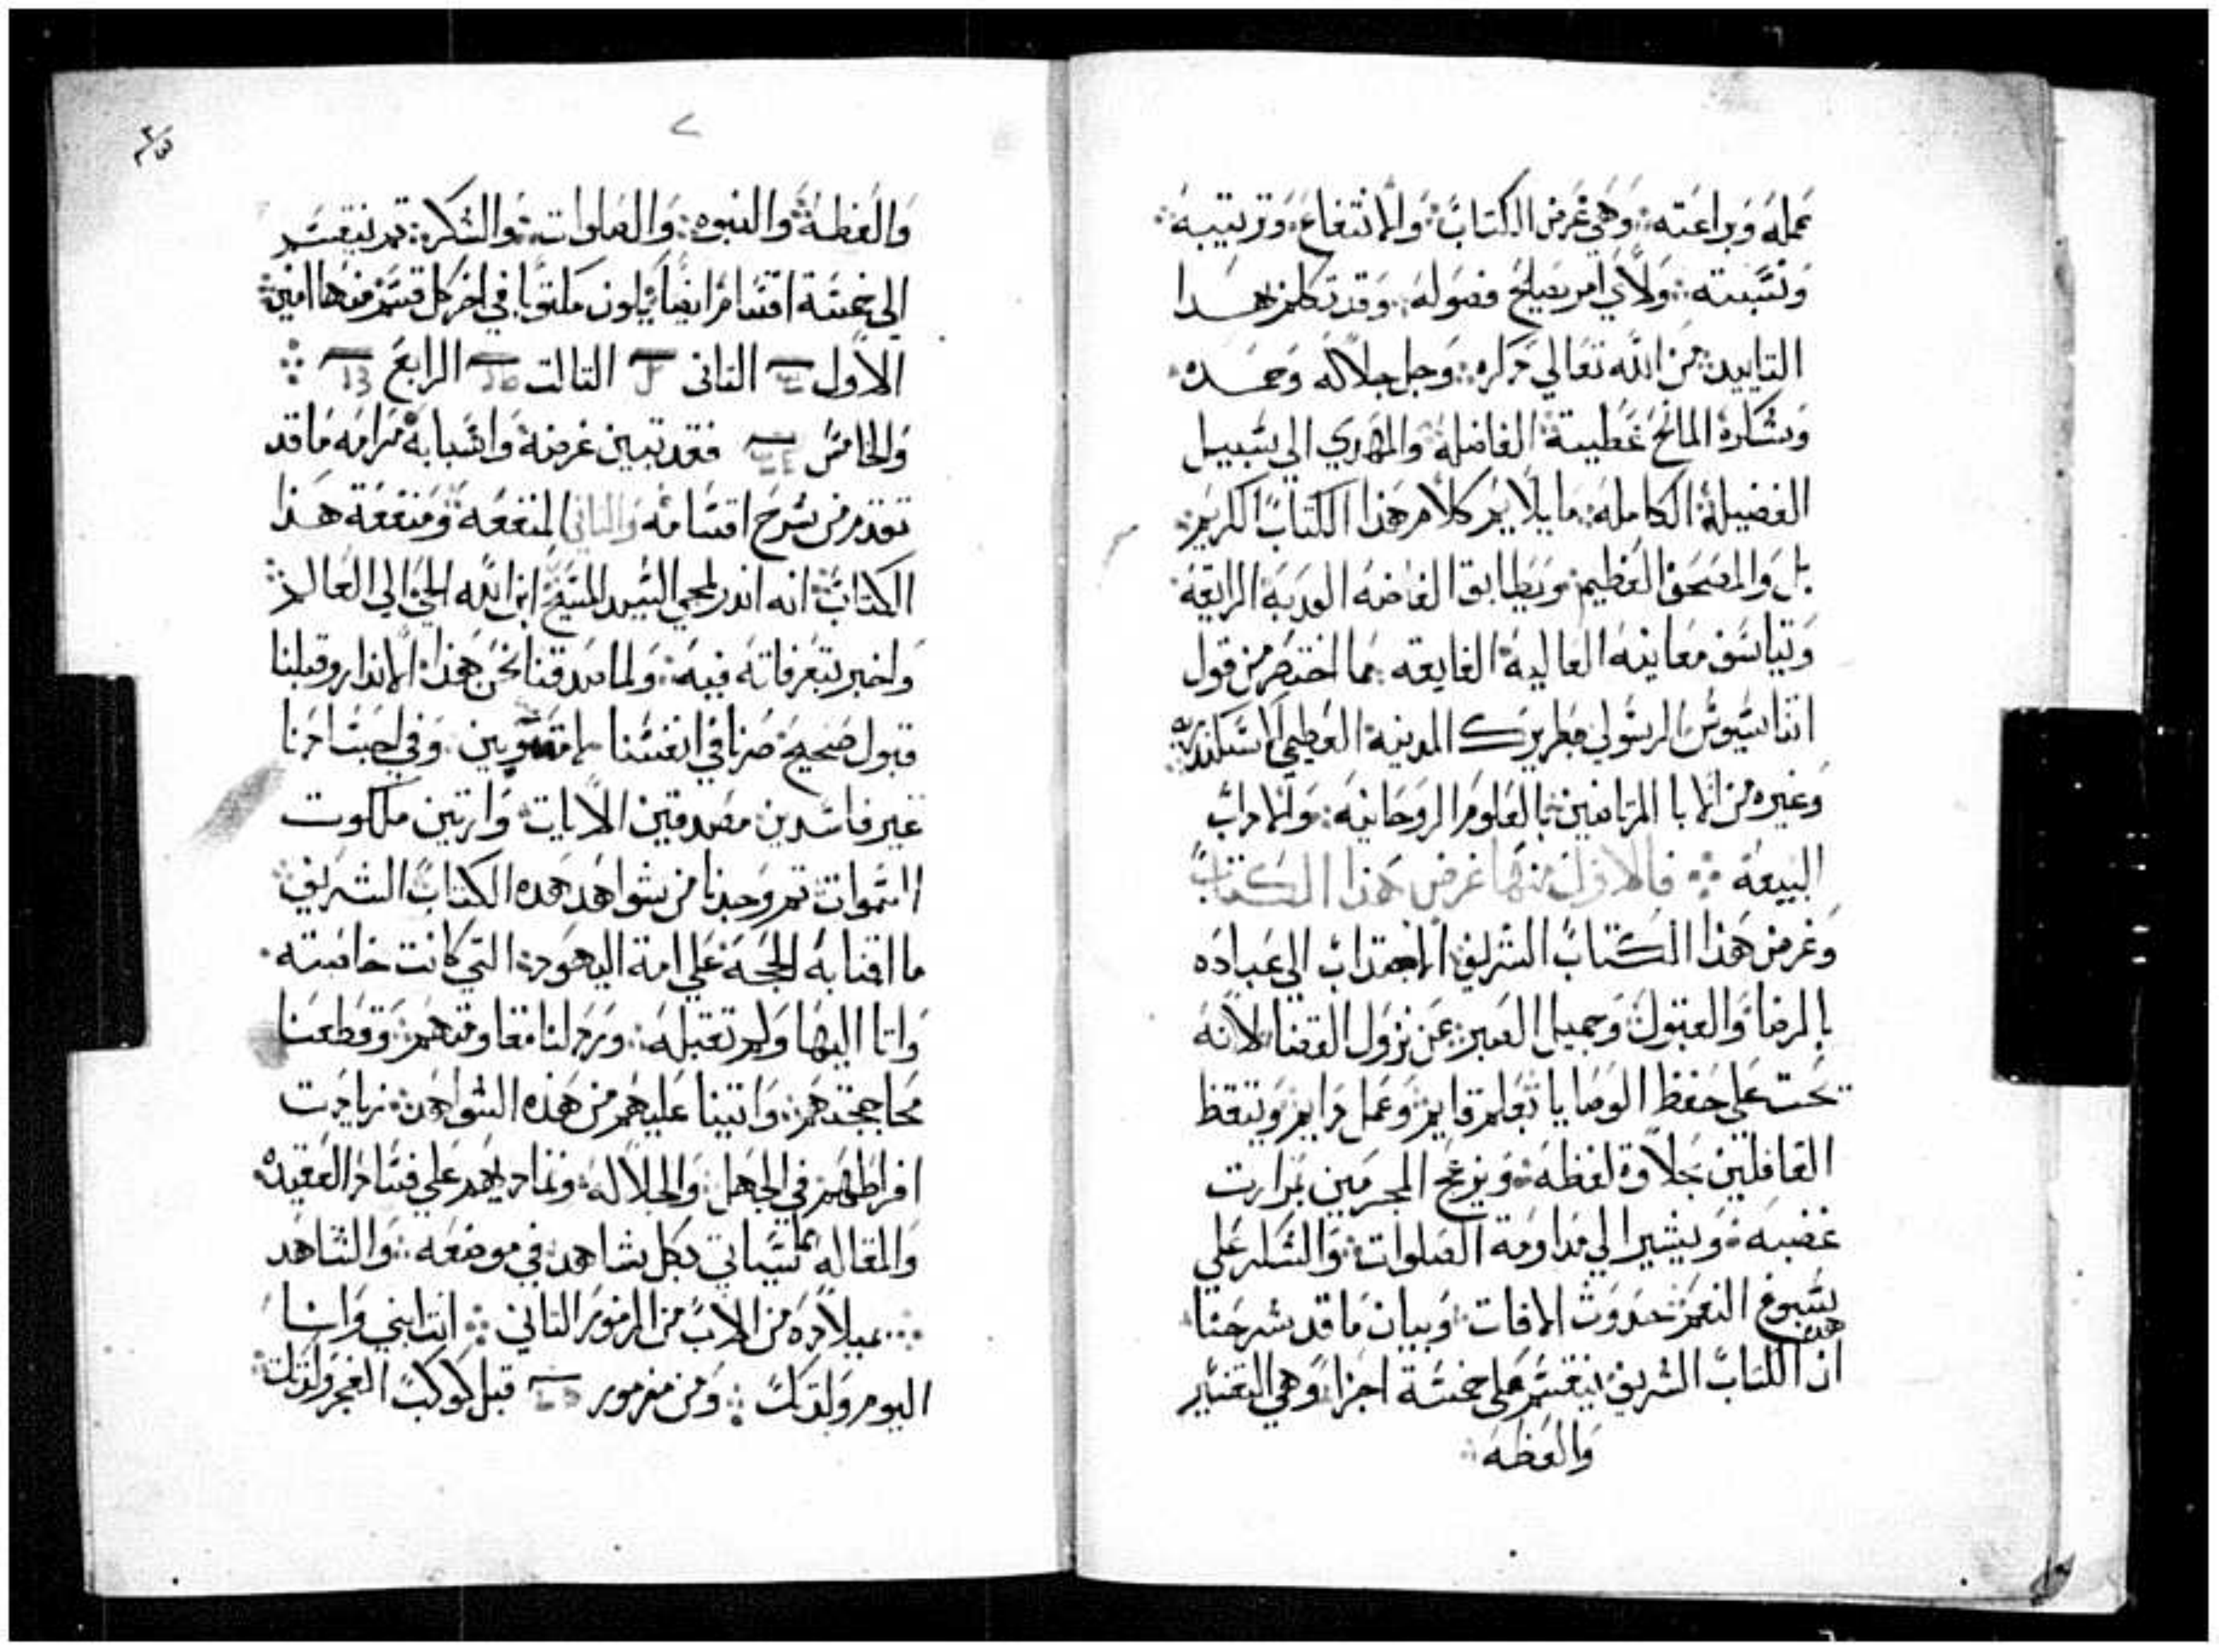 عمله وبراعته ۞ وهي غرض الكتاب ۞ والانتفاع ۞ وترتيبه ۞
ونسبته ۞ ولاي امر يصلح فصوله ۞ وقد تكلم بهدا
التاييد من الله تعالي دكره ۞ وجل جلاله وحمده
وشكره المانح عطيته الفاضله والمهدي الي سبيل
الفضيلة الكامله ۞ ما يلايم كلام هذا الكتاب الكريم ۞
بل والمصحف العظيم ويطابق الفاضه العدبه الرايقه
وتياسق معانيه العاليه الفايقه مما اختصر من قول
اتناسيوس الرسولي بطريرك المدينه العظمي الاسكندريه
وغيره من الابا المرتاضين بالعلوم الروحانيه ۞ والاداب
البيعه ۞ فالاول منها غرض هذا الكتاب
وغرض هذا الكتاب الشريف الاجتداب الي عباده
بالرضا والقبول ۞ وجميل الصبر ۞ عن نزول القضا لانه
يحت علي حفظ الوصايا بعلم قايم وعمل دايم ويتقظ
الغافلين بحلاوة لفظه ۞ ويزعج المجرمين بمرارت
غضبه ۞ ويشير الي مداومة الصلوات ۞ والشكر علي
سبوغ النعم ۞ حدوث الافات ۞ وبيان ما قد شرحنا
هده
ان الكتاب الشريف ينقسم علي خمسة اجزا ۞ وهي التفسير
والعظه ۞
والعظة ۞ والنبوه ۞ والصلوات ۞ والشكر ۞ تم تنقسم
الي خمسة اقسام ايضا يكون مكتوبا في اخر كل قسم منها امين ۞
الاول التاني التالت الرابع ۞
والخامس فقد تبين غرضه واسبابه مرامه ما قد
تقدم من شرح اقسامه والتاني المنفعه ۞ ومنفعة هذا
الكتاب ۞ انه اندر بمجي السيد المسيح ابن الله الحي الي العالم ۞
واخبر بتصرفاته فيه ۞ ولما صدقنا نحن هذا الاندار وقبلنا
قبول صحيح صرنا في انفسنا وفي اجسادنا
غير فاسدين ۞ مصدقين الايات ۞ وارتين ملكوت
السموات ۞ تم وجدنا من شواهد هده الكتاب الشريف ۞
ما اقمنا به الحجه علي امة اليهود ۞ التي كانت خاصته
واتا اليها ولم تقبله ۞ وردلنا مقاومتهم ۞ وقطعنا
محاججتهم ۞ واتبتنا عليهم من هذه الشواهد ۞ زيادت
افراطهم في الجهل ۞ والضلاله ۞ وتماديهم علي فساد العقيده ۞
والمقاله كما سياتي بكل شاهد ۞ في موضعه ۞ والشاهد
۞ بميلاده من الاب من المزمور التاني ۞ انت ابني وانا
اليوم ولدتك ۞ ومن مزمور قبل كوكب الفجر ولدتك ۞